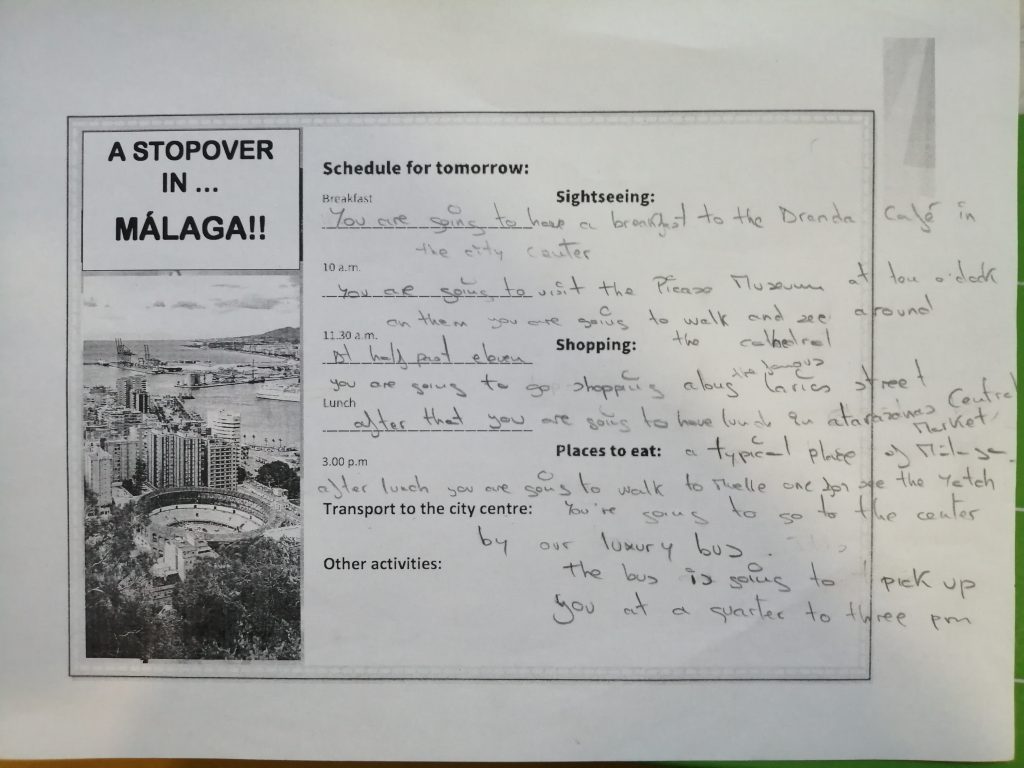 A STOPOVER
IN ...
MÁLAGA!!
Schedule for tomorrow:
Breakfast
Sightseeing:
You are going to have a breakfast to the Dranda Café in
the city center
10 a.m.
You are going to visit the Picaso Museum at o'clock
you are going to walk and see around
11.30 a.m.
the cathedral
At half past eleven
Shopping:
you are going to go shopping street
Lunch
after that you are going to have lunch in atarazanas Central
Market
Places to eat: a typical place of
3.00 p.m
after lunch you are going to walk to Muelle one for see the Yatch
Transport to the city centre: You're going to go to the center
by our luxury bus.
Other activities:
the bus is going to pick up
you at a quarter to three pm